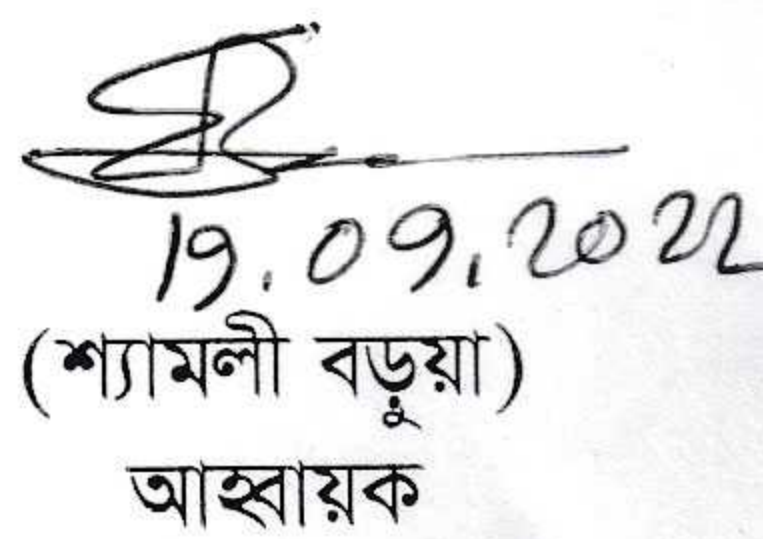 19.09.2022
(শ্যামলী বড়ুয়া)
আহ্বায়ক